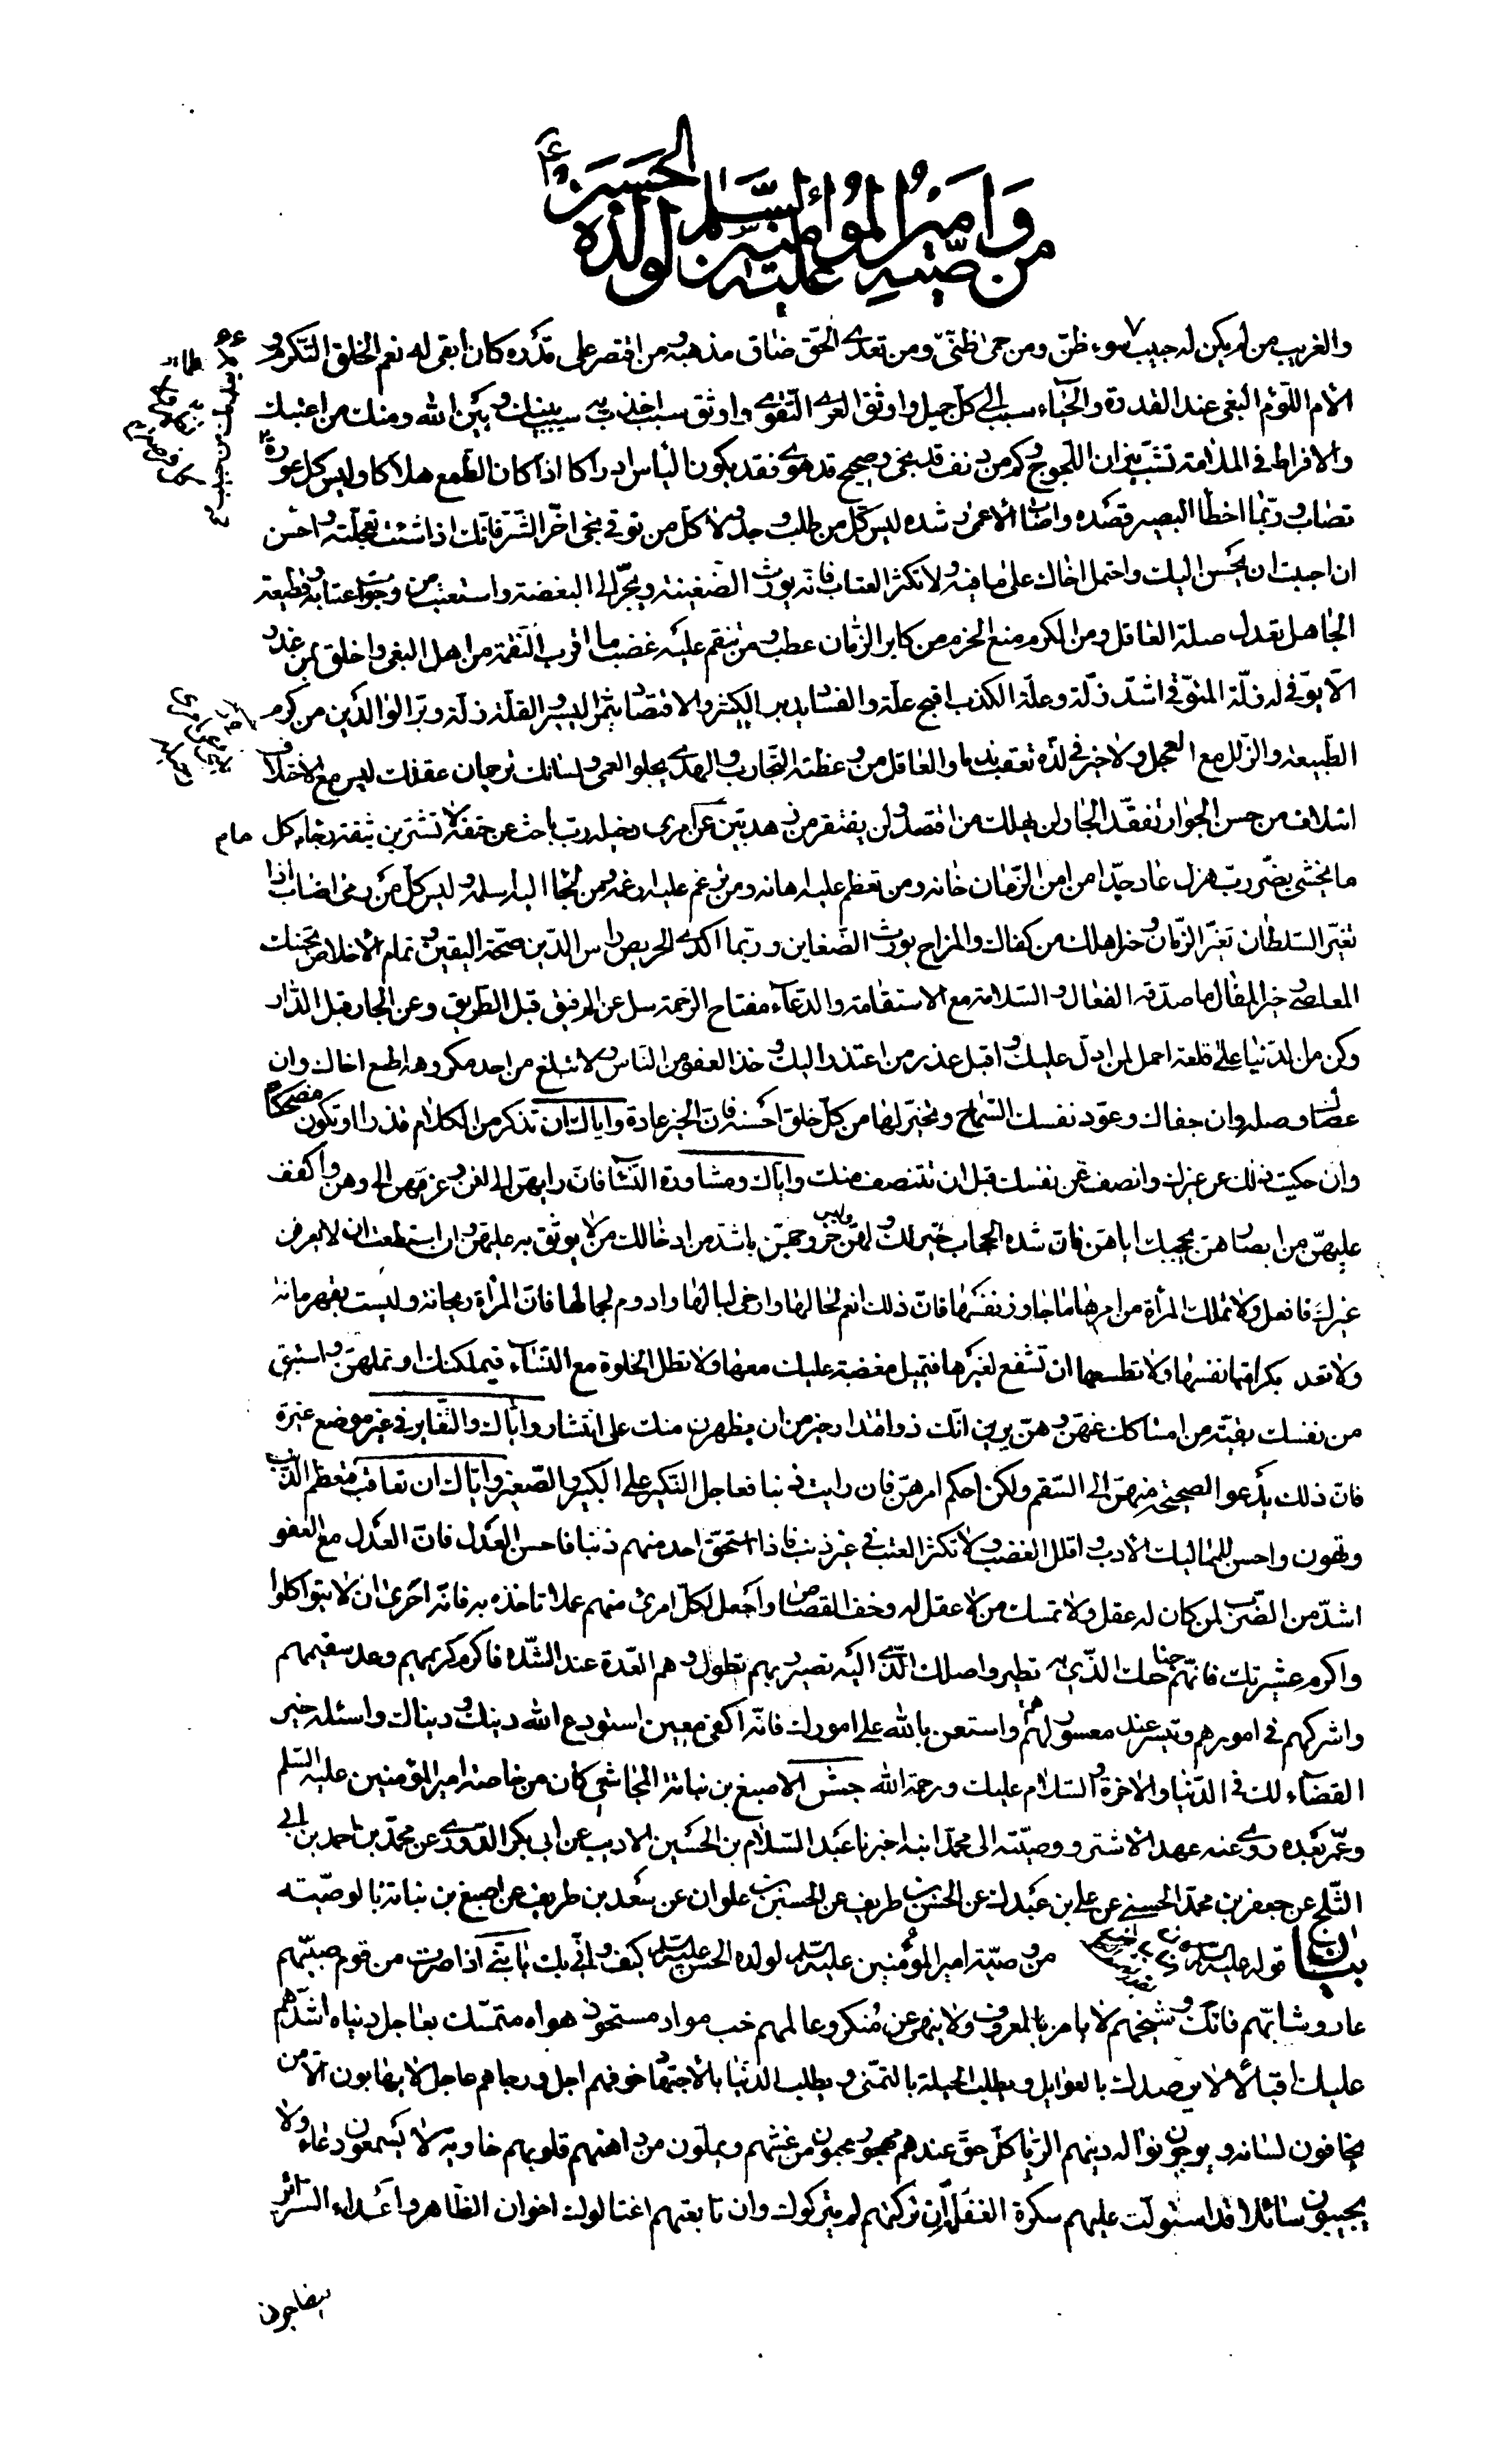 من وصية أمير المؤمنين عليه السلم لولده الحسن ع
والغريب من لم يكن له حبيب سوء ظن ومن حمى طنى ومن تعدى الحق ضاق مذهبه ومن اقتصر على قدره كان أبقى له نعم الخلق التكرم و
الأم اللؤم البغي عند القدرة والحياء سبب الى كل جميل واوثق العرى التقوى واوثق سبب اخذت به سبب بينك وبين الله ومنك من اعتبك
والافراط في الملامة تشب نيران اللجوج وكم من دنف قد نجى وصحيح قد هوى فقد يكون الياس ادراكا اذا كان الطمع هلاكا وليس كل عورة
تصاب وربما اخطا البصير قصده واصاب الأعمى رشده ليس كل من طلب وجد ولا كل من توقى نجى اخر الشر فانك اذا شئت تعجلته واحسن
ان احببت ان يحسن اليك واحتمل اخاك على ما فيه ولا تكثر العتاب فانه يورث الضغينة ويجر الى البغضة واستعتب من رجوت اعتابه وقطيعة
الجاهل تعدل صلة العاقل ومن الكرم منع الحزم من كابر الزمان عطب ومن ينقم عليه غضب ما اقرب النقمة من اهل البغي واخلق بمن غدر
الا يوفى له زلة المتوقى اشد زلة وعلة الكذب اقبح علة والفساد يبير الكثير والاقتصاد يثمر اليسير والقلة ذلة وبر الوالدين من كرم
الطبيعة والزلل مع العجل ولا خير في لذة تعقب ندما والعاقل من وعظته التجارب والهدى يجلو العمى ولسانك ترجمان عقلك ليس مع الاختلاف
ائتلاف من حسن الجوار تفقد الجار لن يهلك من اقتصد ولن يفتقر من زهد بين عن امرى دخيله رب باحث عن حتفه لا تشترين بثقة رجاء كل مام
ما يخشى يضر رب هزل عاد جدا من امن الزمان خانه ومن تعظم عليه اهانه ومن ترغم عليه ارغمه ومن لجا اليه سلمه وليس كل من رمى اصاب اذا
تغير السلطان تغير الزمان وخير اهلك من كفاك والمزاح يورث الضغاين وربما اكدى الحريص راس الدين صحة اليقين وتمام الاخلاص تجنبك
المعاصي وخير المقال ما صدقه الفعال والسلامة مع الاستقامة والدعاء مفتاح الرحمة سل عن الرفيق قبل الطريق وعن الجار قبل الدار
وكن من الدنيا على قلعة احمل لمن ادل عليك واقبل عذر من اعتذر اليك وخذ العفو من الناس ولا تبلغ من احد مكروهه اطع اخاك وان
عصاك وصله وان جفاك وعود نفسك السماح وتخير لها من كل خلق احسنه فان الخير عادة واياك ان تذكر من الكلام قذرا او تكون مضحكا
وان حكيت ذلك عن غيرك وانصف من نفسك قبل ان تنتصف منك واياك ومشاورة النساء فان رايهن الى افن وعزمهن الى وهن واكفف
عليهن من ابصارهن بحجبك اياهن فان شدة الحجاب خير لك ولهن وليس خروجهن باشد من ادخالك من لا يوثق به عليهن وان استطعت ان لا يعرفن
غيرك فافعل ولا تملك المراة من امرها ما جاوز نفسها فان ذلك انعم لحالها وارخى لبالها وادوم لجمالها فان المراة ريحانة وليست بقهرمانة
ولا تعد بكرامتها نفسها ولا تطمعها ان تشفع لغيرها فتميل مغضبة عليك معها ولا تطل الخلوة مع النساء فيملكنك او تملهن واستبق
من نفسك بقية من امساكك عنهن وهن يرين انك ذو اقتدار خير من ان يظهرن منك على انتشار واياك والتغاير في غير موضع غيرة
فان ذلك يدعو الصحيحة منهن الى السقم ولكن احكم امرهن فان رايت ذنبا فعاجل النكير على الكبير والصغير واياك ان تعاقب فتعظم الذنب
وتهون واحسن للمماليك الأدب واقلل الغضب ولا تكثر العتب في غير ذنب فاذا استحق احد منهم ذنبا فاحسن العدل فان العدل مع العفو
اشد من الضرب لمن كان له عقل ولا تمسك من لا عقل له وخف القصاص واجعل لكل امرئ منهم عملا تاخذه به فانه احرى ان لا يتواكلوا
واكرم عشيرتك فانهم جناحك الذي به تطير واصلك الذي اليه تصير وبهم تطول وهم العدة عند الشدة فاكرم كريمهم وعد سقيمهم
واشركهم في امورهم وتيسر عند معسور لهم واستعن بالله على امورك فانه اكفى معين استودع الله دينك ودنياك واسئله خير
القضاء لك في الدنيا والاخرة والسلام عليك ورحمة الله جش الاصبغ بن نباتة المجاشعي كان من خاصة امير المؤمنين عليه السلم
وعمر بعده روى عنه عهد الاشتر ووصيته الى محمد ابنه اخبرنا عبد السلام بن الحسين الاديب عن ابى بكر الدورى عن محمد بن احمد بن ابي
الثلج عن جعفر بن محمد الحسنى عن على بن عبدك عن الحسن بن طريف عن الحسين بن علوان عن سعد بن طريف عن اصبغ بن نباتة بالوصية
بيان قوله عليه السلم من وصية امير المؤمنين عليه السلم لولده الحسن عليه السلم كيف وانى بك يا بنى اذا صرت من قوم صبيهم
عار وشابهم فاتك وشيخهم لا يامر بالمعروف ولا ينهى عن منكر وعالمهم خب مواد مستحوذ هواه متمسك بعاجل دنياه اشدهم
عليك اقبالا يرصدك بالغوايل ويطلب الحيلة بالتمنى ويطلب الدنيا بالاجتهاد خوفهم اجل ورجاهم عاجل لا يهابون الا من
يخافون لسانه ويرجون نواله دينهم الربا كل حق عندهم مهجور يحبون من غشهم ويملون من داهنهم قلوبهم خاوية لا يسمعون دعاء ولا
يجيبون سائلا قد استولت عليهم سكرة الغفلة ان تركتهم لم يتركوك وان تابعتهم اغتالوك اخوان الظاهر واعداء السرائر
يتصاحبون